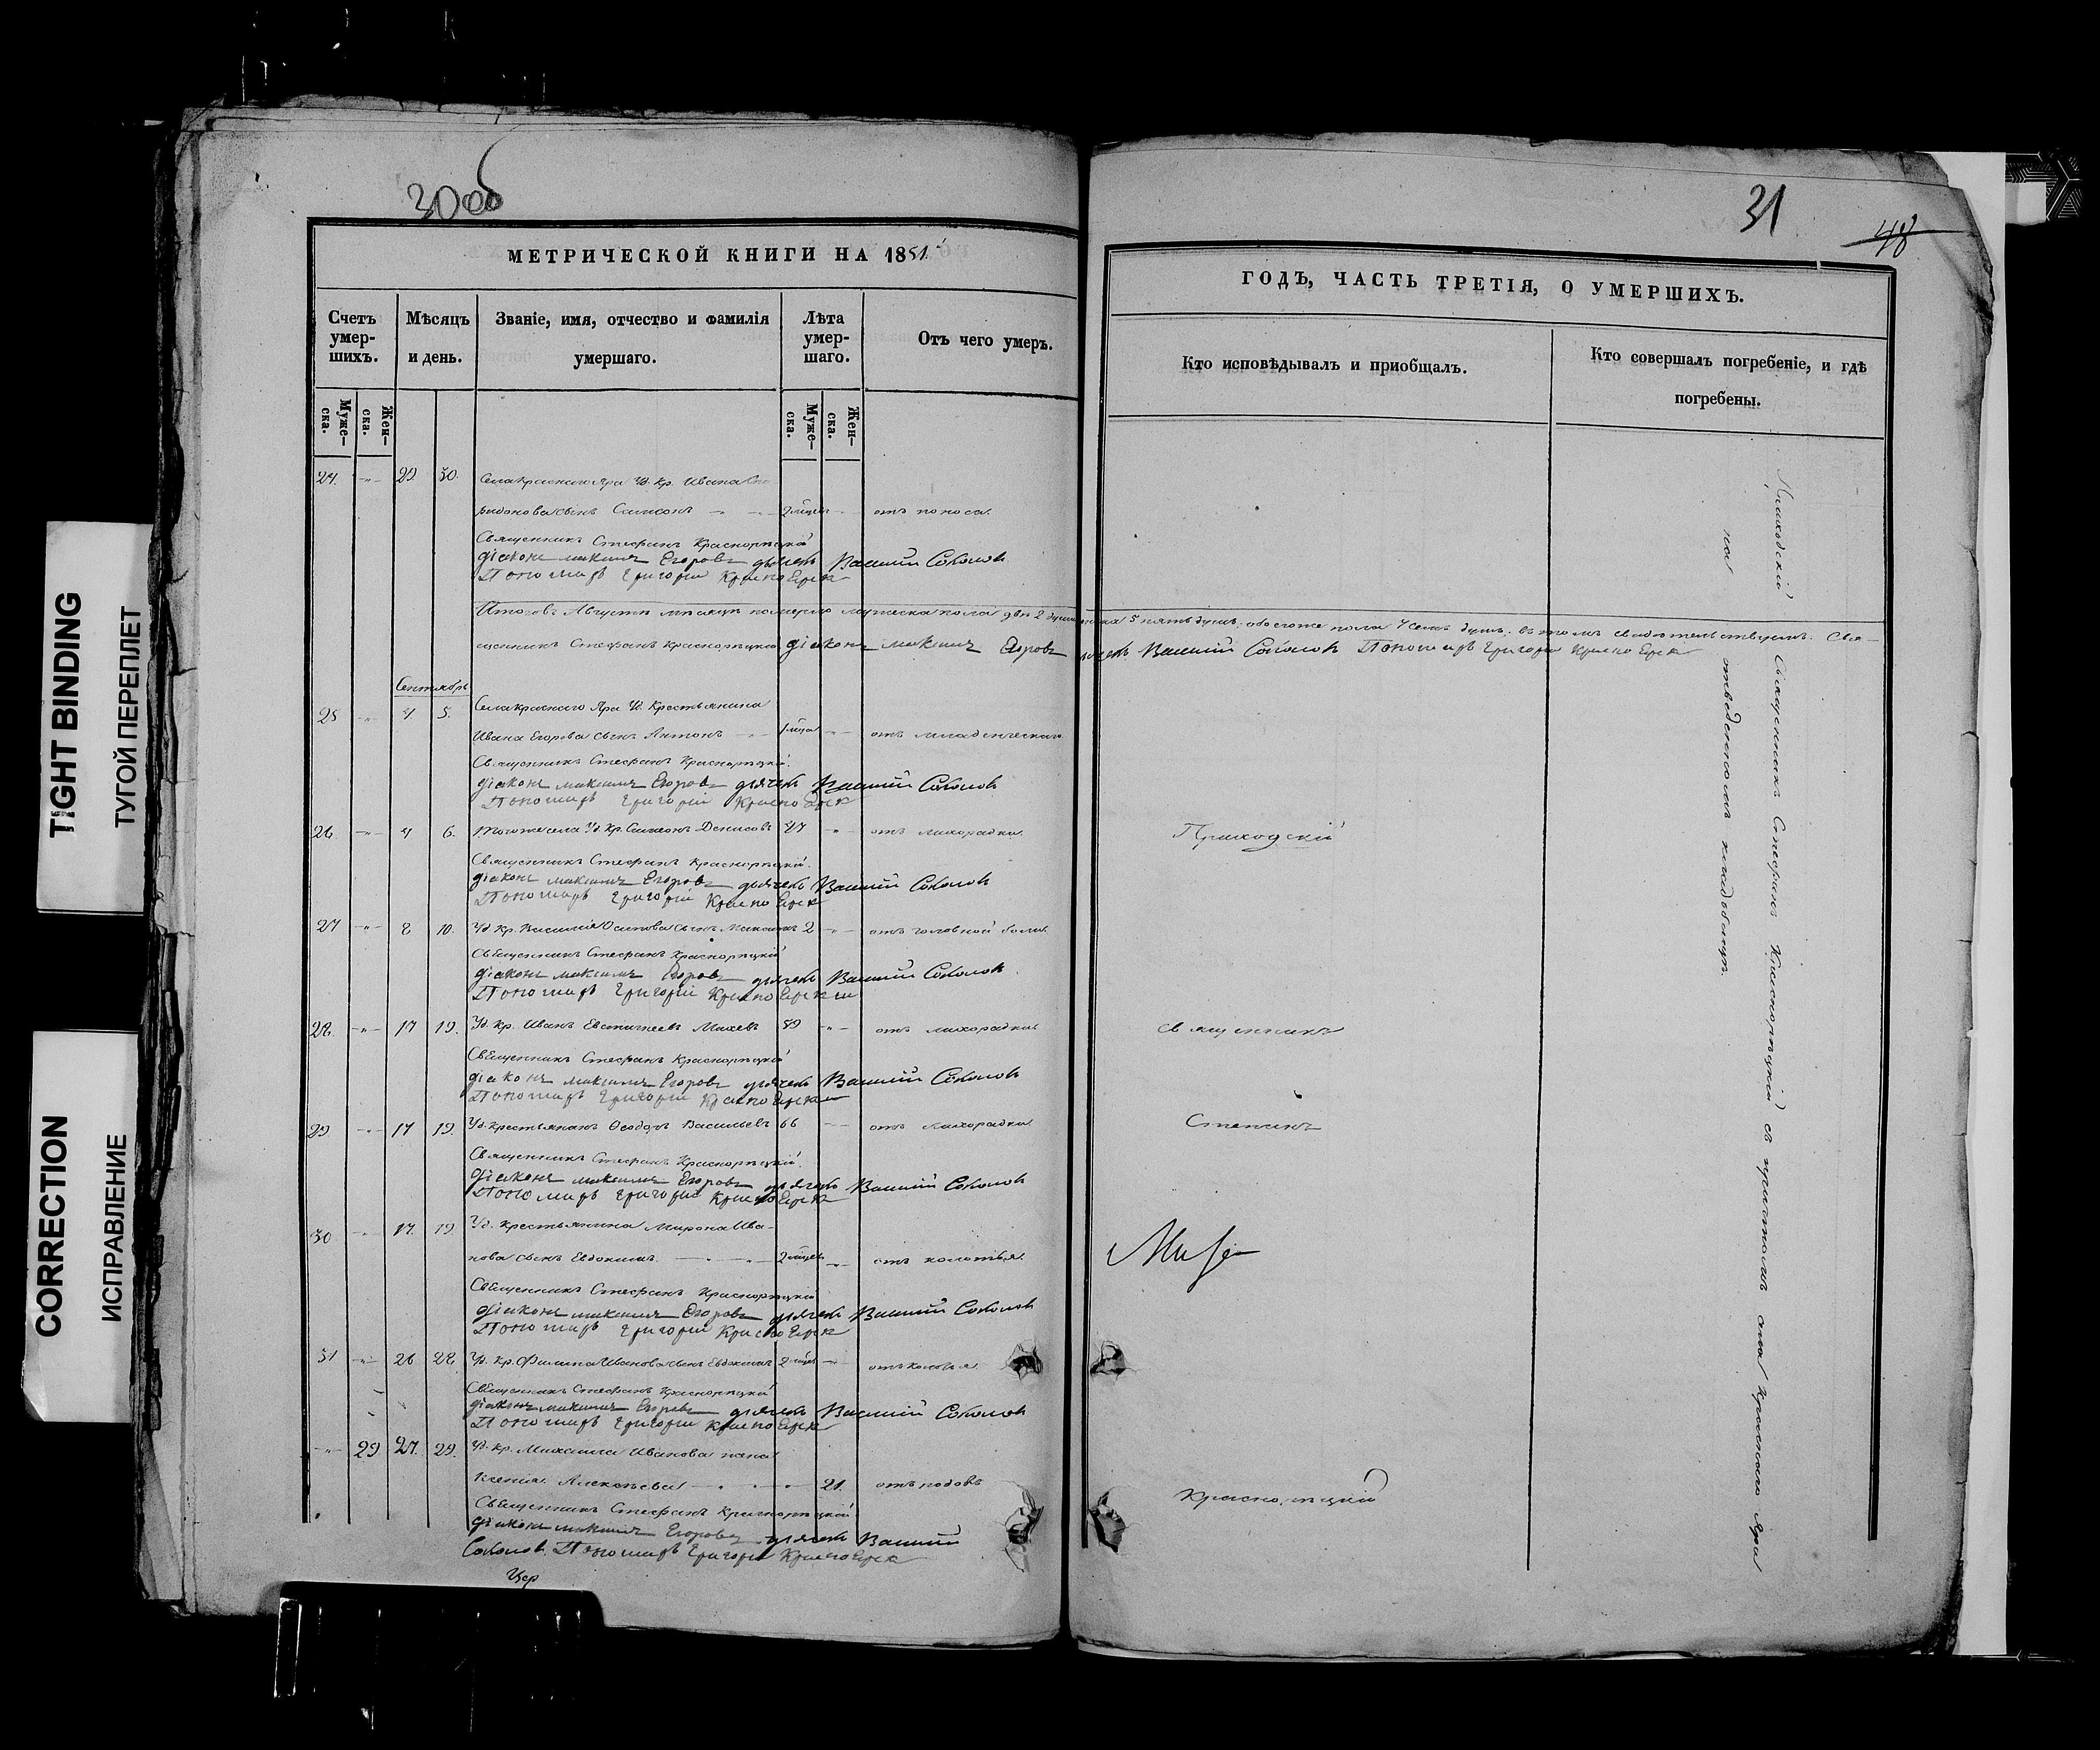 TIGHT BINDING
ТУГОЙ ПЕРЕПЛЕТ
CORRECTION
ИСПРАВЛЕНИЕ
30об
МЕТРИЧЕСКОЙ КНИГИ НА 1851
Счетъ умер-шихъ.
Мѣсяцъ и день.
Званіе, имя, отчество и фамилія умершаго.
Лѣта умер-шаго.
Отъ чего умеръ.
Муже-ска.
Жен-ска.
Муже-ска.
Жен-ска.
24. -"- 29 30. Села Краснаго Яра Уд. Кр. Ивана
ридонова сынъ Симеонъ 2 мѣсец отъ поноса.
Священникъ Стефанъ Краснорѣцкій
Діаконъ Максимъ Егоровъ дьячекъ Василий Соколовъ
Пономарь Григорій Красно
Итого въ Августѣ мѣсяцѣ померло мужеска пола два 2 души женска 5 пять душъ, обоего же пола 7 семь душъ. въ томъ свидетельствуемъ: Свя-
щенникъ Стефанъ Краснорѣцкій діаконъ Максимъ Егоровъ дьячекъ Василий Соколовъ Пономарь Григорій Красно
Сентябрь
25 -"- 4 5. Села Краснаго Яра Уд. Крестьянина
Ивана Егорова сынъ Антонъ отъ младенческаго
Священникъ Стефанъ Краснорѣцкій.
Діаконъ Максимъ Егоровъ дьячекъ Василий Соколовъ
Пономарь Григорій Красно
26. -"- 4 6. Того же села Уд. Кр. Симеонъ Денисовъ 47 -"- отъ лихорадки.
Священникъ Стефанъ Краснорѣцкій.
Діаконъ Максимъ Егоровъ дьячекъ Василий Соколовъ
Пономарь Григорій Красно
27 -"- 8 10. Уд. Кр. Василія Осипова сынъ Максимъ 2 -"- отъ головной боли
Священникъ Стефанъ Краснорѣцкій
Діаконъ Максимъ Егоровъ дьячекъ Василий Соколовъ
Пономарь Григорій Красно
28. -"- 17 19. Уд. Кр. Иванъ Евстигнеевъ Михеевъ 59 -"- отъ лихорадки
Священникъ Стефанъ Краснорѣцкій
Діаконъ Максимъ Егоровъ дьячекъ Василий Соколовъ
Пономарь Григорій Красно
29 -"- 17 19. Уд. Крестьянинъ Ѳеодоръ Васильевъ 66 отъ лихорадки
Священникъ Стефанъ Краснорѣцкій.
Діаконъ Максимъ Егоровъ дьячекъ Василий Соколовъ
Пономарь Григорій Красно
30 -"- 17. 19 Уд. Крестьянина Мирона Ива-
нова сынъ Евдокимъ 2 мѣсец -"- отъ колотья.
Священникъ Стефанъ Краснорѣцкій
Діаконъ Максимъ Егоровъ дьячекъ Василий Соколовъ
Пономарь Григорій Красно
31 -"- 26 28 Уд. Кр. Филипа Иванова сынъ Евдокимъ 2 мѣсец отъ колотья
Священникъ Стефанъ Краснорѣцкій
Діаконъ Максимъ Егоровъ дьячекъ Василий Соколовъ
Пономарь Григорій Красно
-"- 29 27. 29. Уд. Кр. Михаила Иванова жена
Ксенія Алексѣева -"- 21. отъ родовъ
Священникъ Стефанъ Краснорѣцкій
Діаконъ Максимъ Егоровъ дьячекъ Василий
Соколовъ. Пономарь Григорій Красно
31
48
ГОДЪ, ЧАСТЬ ТРЕТІЯ, О УМЕРШИХЪ.
Кто исповѣдывалъ и приобщалъ.
Кто совершалъ погребеніе, и гдѣ погребены.
Приходскій
священникъ
Стефанъ
Краснорѣцкій
Приходскій Священникъ Стефанъ Краснорѣцкій съ причтомъ села Краснаго Яра
на отведенномъ кладбищѣ.